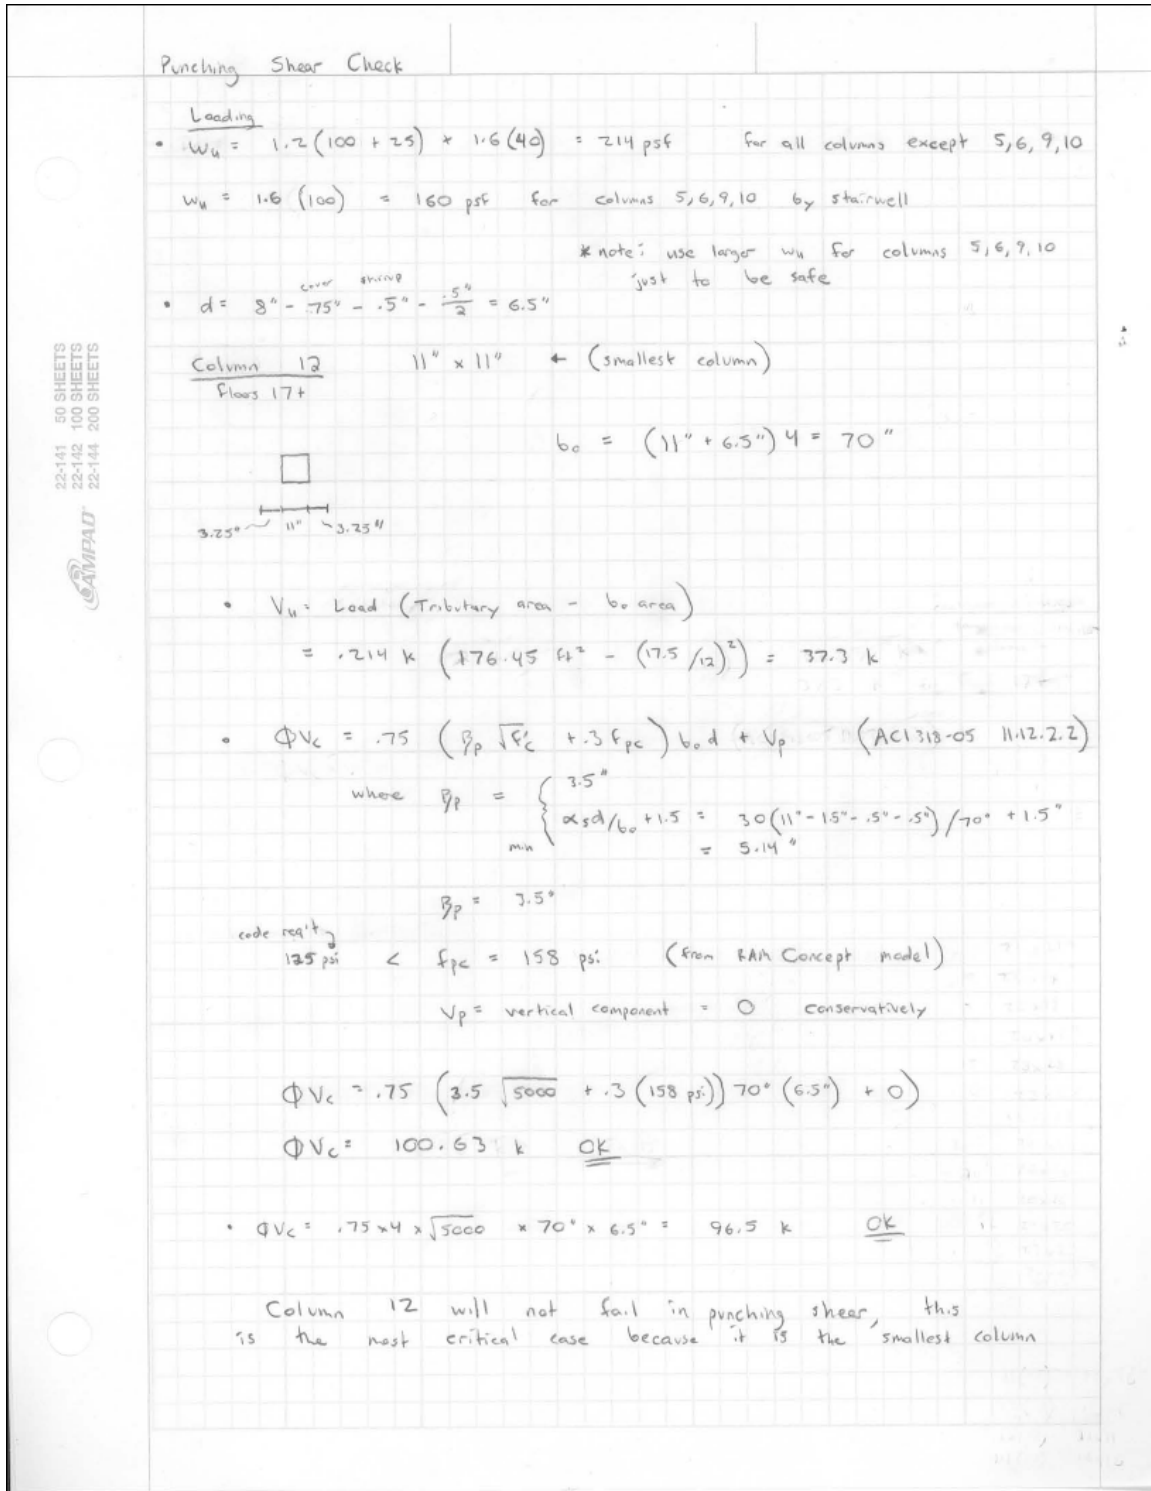 Punching Shear Check
Loading
• Wu = 1.2 (100 + 25) + 1.6 (40) = 214 psf for all columns except 5, 6, 9, 10
wu = 1.6 (100) = 160 psf for columns 5, 6, 9, 10 by stairwell
* note: use larger wu for columns 5, 6, 9, 10
just to be safe
cover stirrup
• d = 8" - .75" - .5" - .5"/2 = 6.5"
Column 12 11" x 11" ← (smallest column)
floors 17+
bo = (11" + 6.5") 4 = 70"
3.25" 11" 3.25"
• Vu = Load (Tributary area - bo area)
= .214 k (176.45 ft² - (17.5/12)²) = 37.3 k
• ΦVc = .75 (βp √f'c + .3 fpc) bo d + Vp (ACI 318-05 11.12.2.2)
where βp = { 3.5"
αsd/bo + 1.5 = 30(11" - 1.5" - .5" - .5")/70" + 1.5"
min = 5.14"
βp = 3.5"
code req't
125 psi < fpc = 158 psi (from RAM Concept model)
Vp = vertical component = 0 conservatively
ΦVc = .75 (3.5 √5000 + .3 (158 psi)) 70" (6.5") + 0)
ΦVc = 100.63 k OK
• ΦVc = .75 x 4 x √5000 x 70" x 6.5" = 96.5 k OK
Column 12 will not fail in punching shear, this
is the most critical case because it is the smallest column
22-141 50 SHEETS
22-142 100 SHEETS
22-144 200 SHEETS
AMPAD